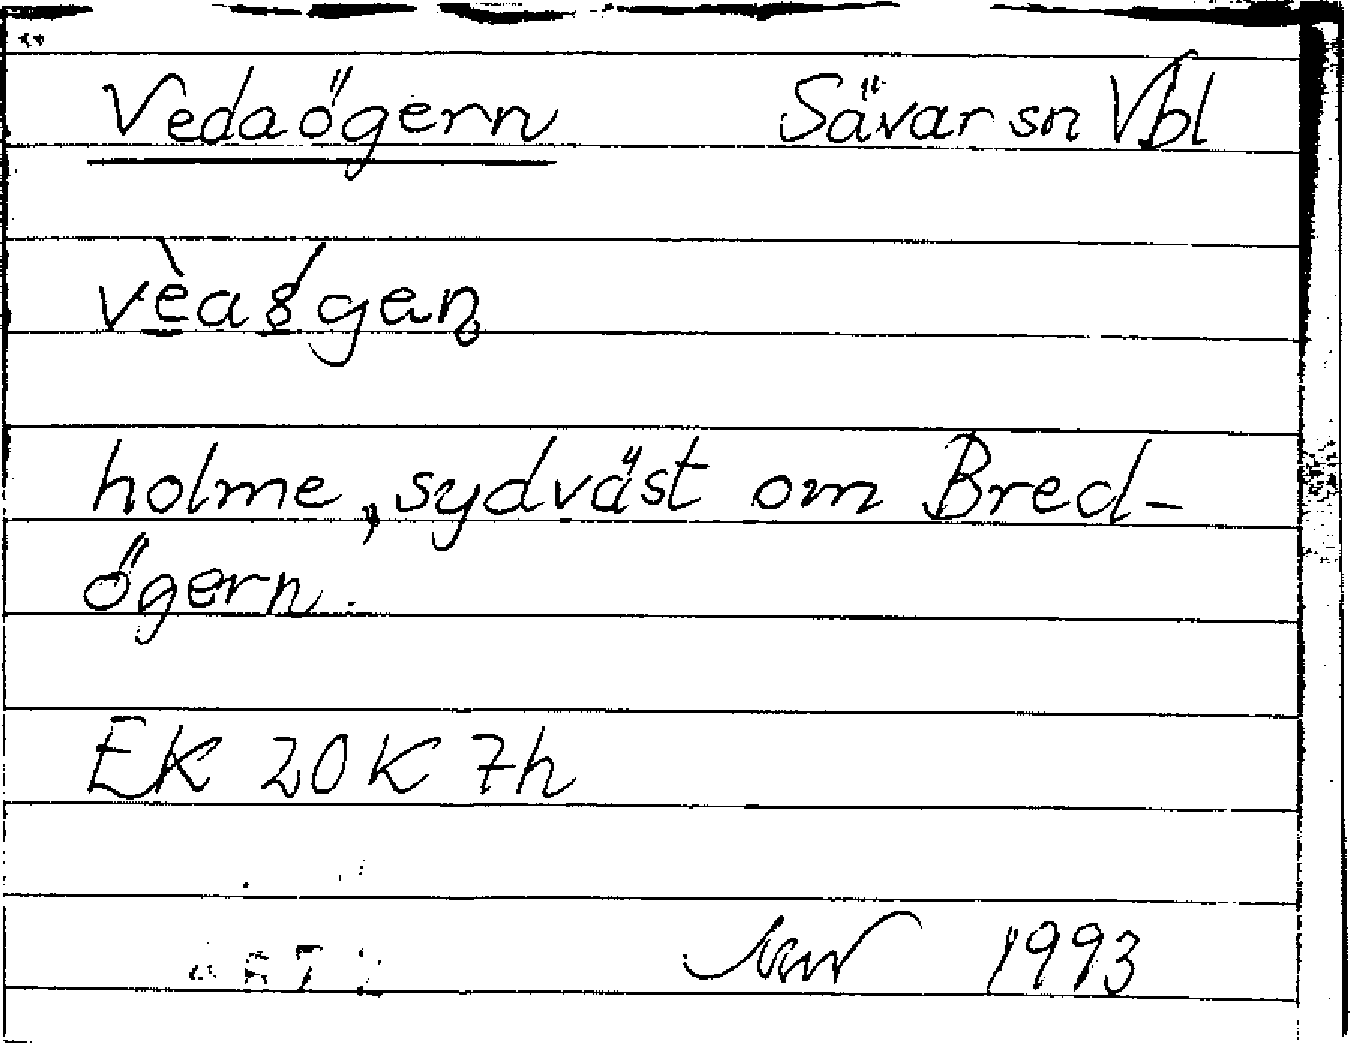 Vedaögern Sävar sn Vbl
holme, sydväst om Bred-
ögern.
EK 20K 7h
1993